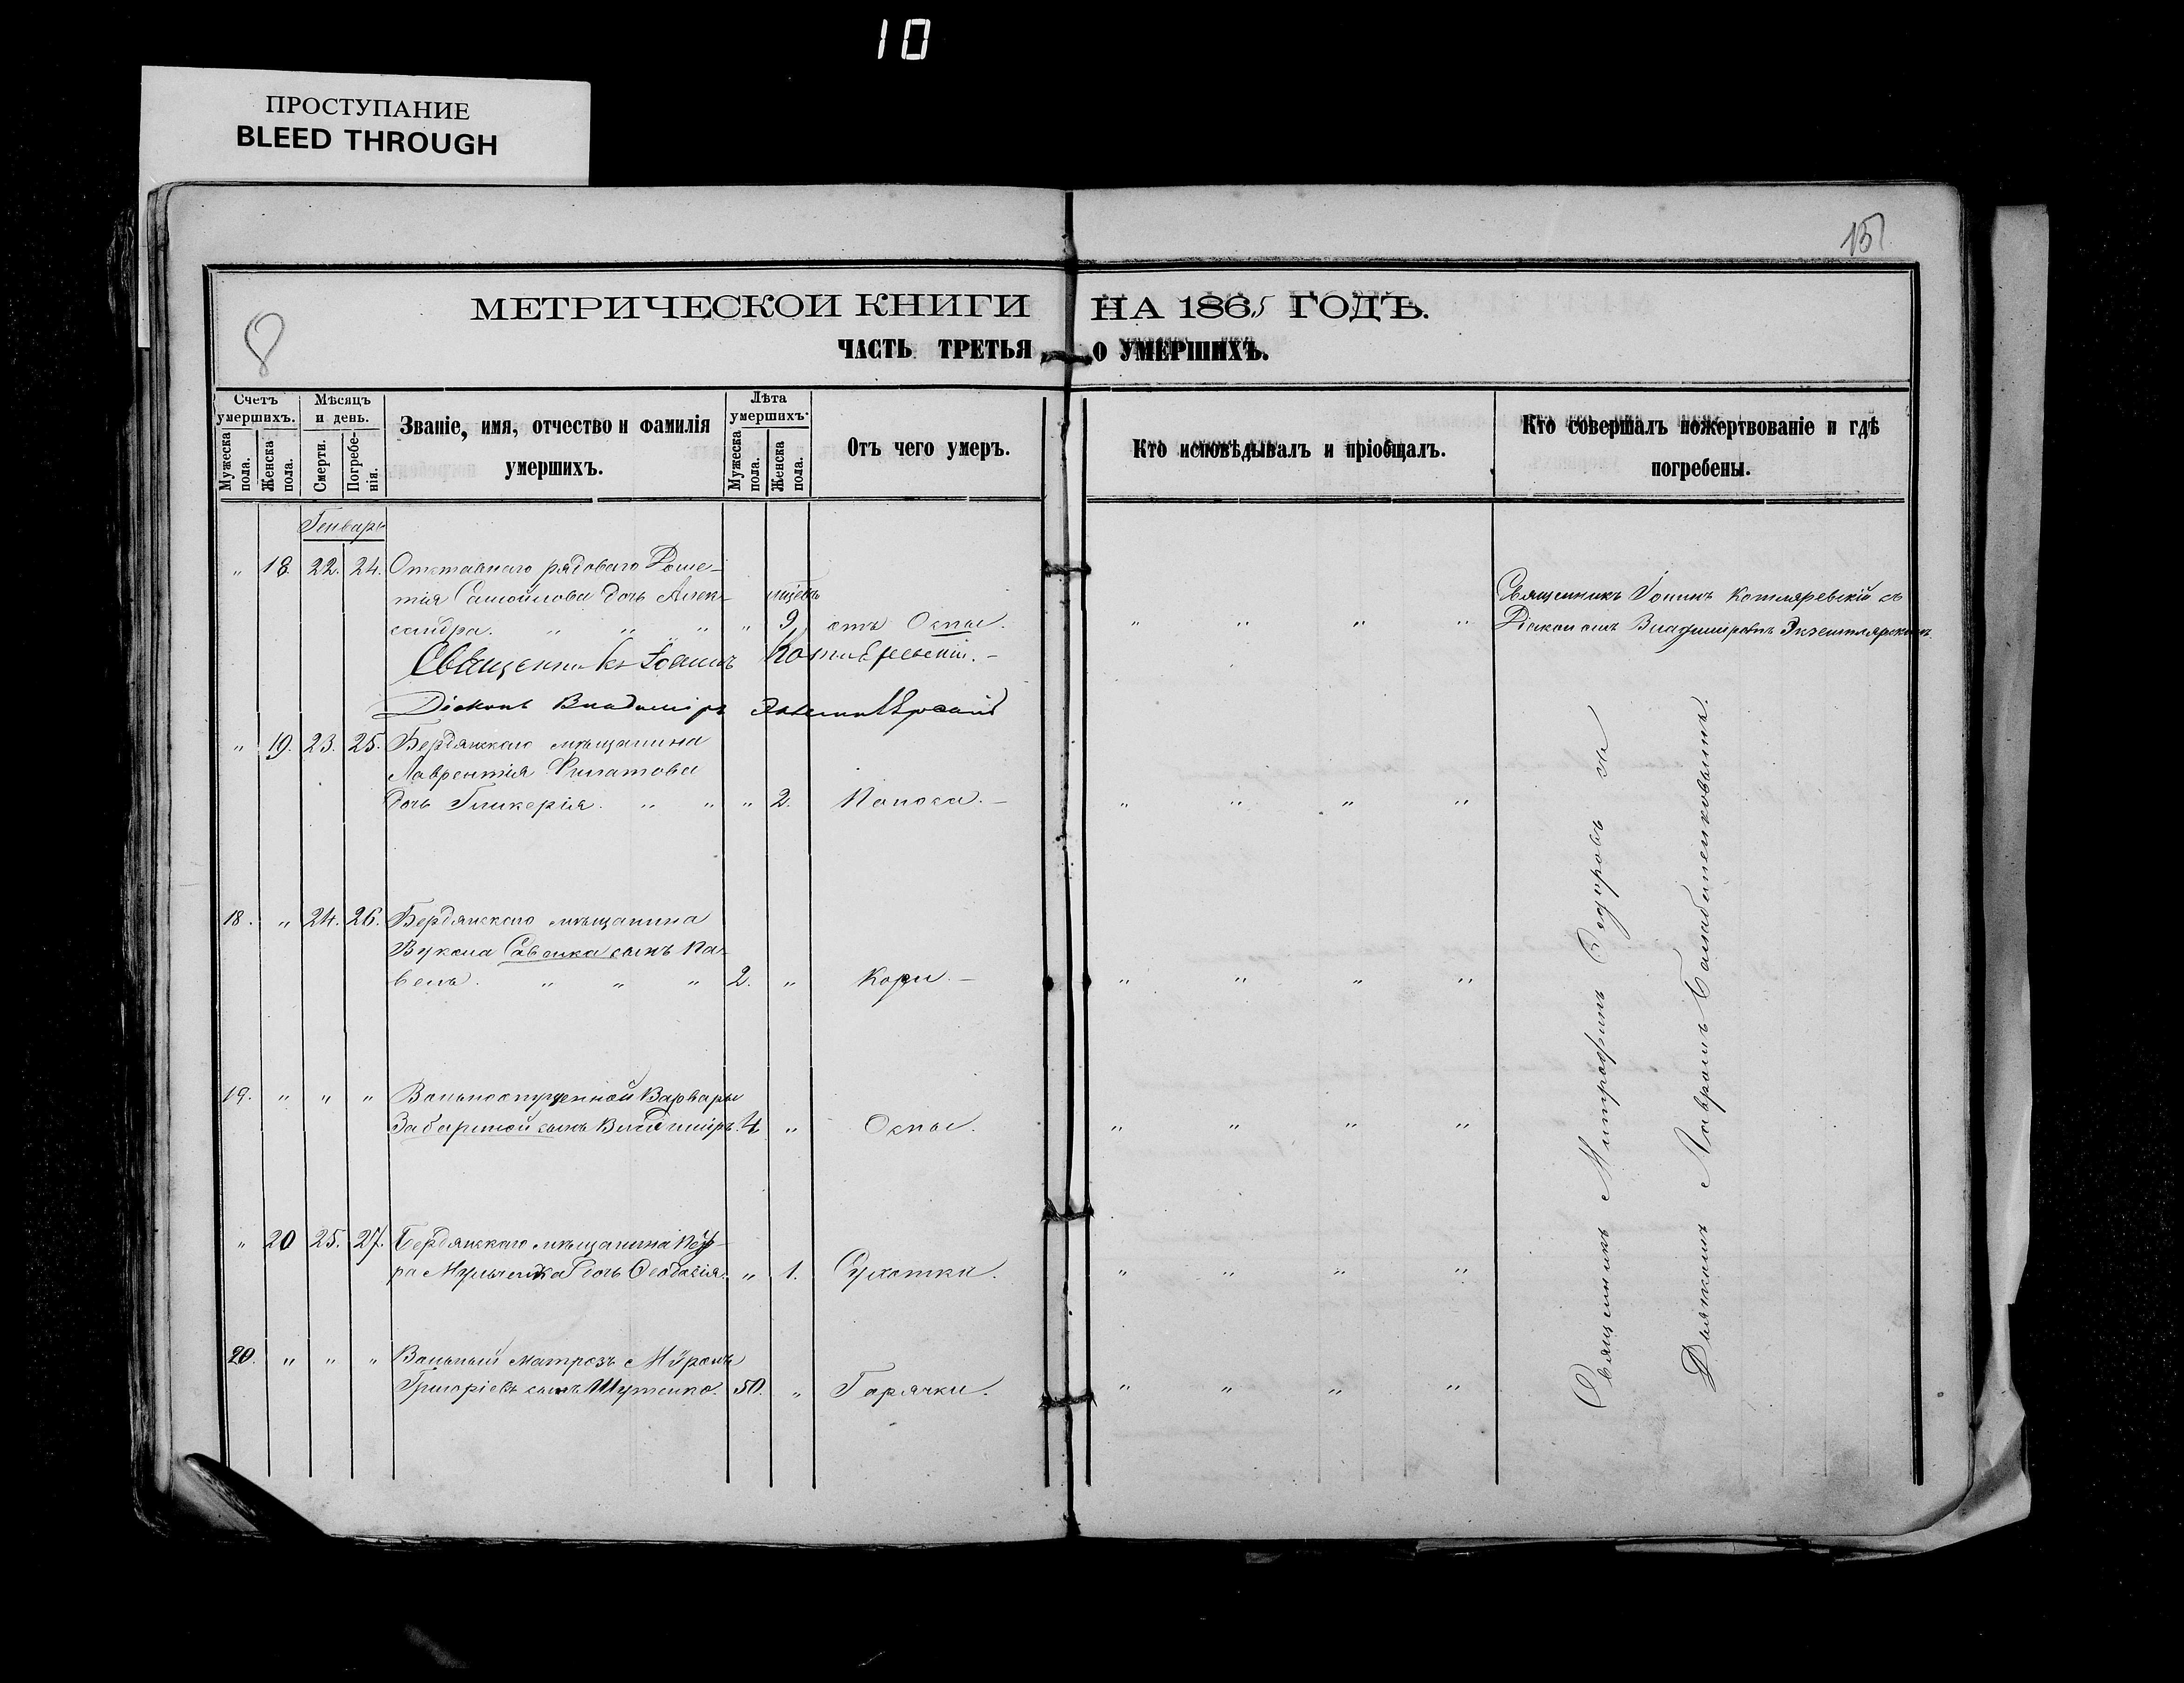 10
ПРОСТУПАНИЕ
BLEED THROUGH
15
8
МЕТРИЧЕСКОЙ КНИГИ НА 1865 ГОДЪ.
ЧАСТЬ ТРЕТЬЯ О УМЕРШИХЪ.
Счетъ умершихъ.
Мужеска пола.
Женска пола.
Мѣсяцъ и день.
Смерти.
Погребенія.
Званіе, имя, отчество и фамилія умершихъ.
Лѣта умершихъ.
Мужеска пола.
Женска пола.
Отъ чего умеръ.
Кто исповѣдывалъ и пріобщалъ.
Кто совершалъ пожертвованіе и гдѣ погребены.
Генварь
" 18. 22. 24. Отставнаго рядоваго
тія Самойлова дочь Алек-
сандра. " " " " 9 отъ Оспы. " " " "
Священникъ Іоаннъ Котляревскій съ
Діакономъ Владиміромъ Экземплярскимъ.
Священникъ Іоаннъ Котляревскій. –
Діаконъ Владиміръ Экземплярскій
" 19. 23. 25. Бердянскаго мѣщанина
Лаврентія Филатова
дочь Гликерія. " " " 2. Поноса. – " " " "
18. " 24. 26. Бердянскаго мѣщанина
Вукола Савенка сынъ Па-
велъ. " " " 2. " Кори. – " " " "
19. " " " Вольноотпущенной Варвары
сынъ Владиміръ. 4. " Оспы. " " " "
" 20 25. 27. Бердянскаго мѣщанина Пет-
ра дочь Ѳеодосія. " 1. Сухотки. " " " "
20. " " " Вольный матрозъ Мѵронъ
Григоріевъ сынъ Шутенко. 50. " Горячки. " " " "
Священникъ Митрофанъ Ѳедоровъ съ
Дьячкомъ Лавромъ